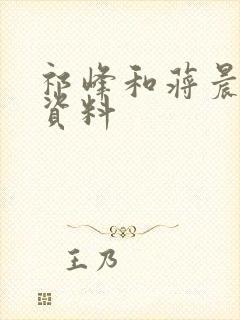 祁峰和蒋晨
资料
王乃